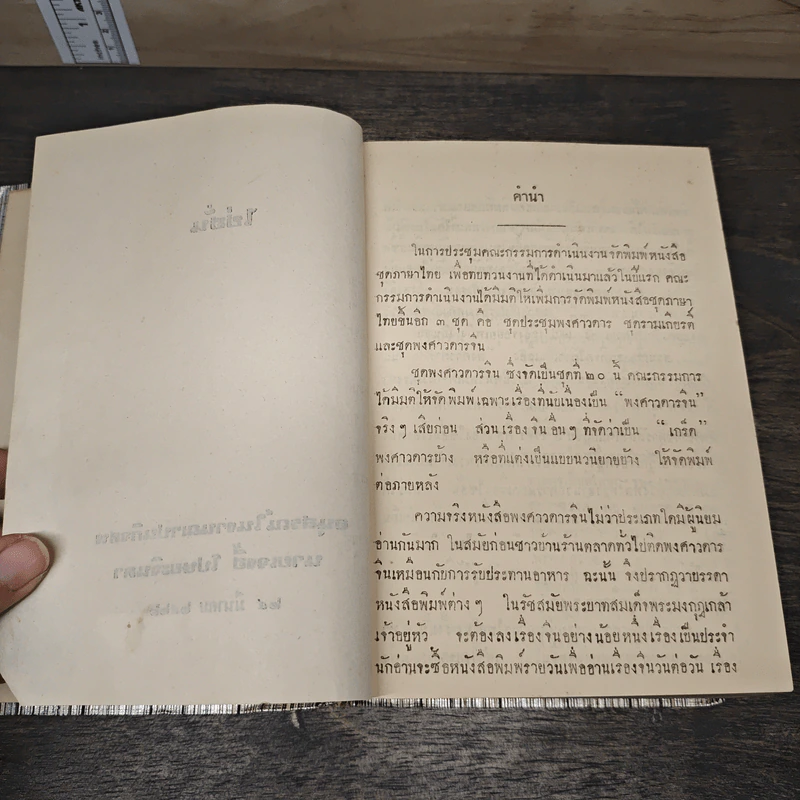 ไซฮั่น
คำนำ
ในการประชุมคณะกรรมการดำเนินงานจัดพิมพ์หนังสือ
ชุดภาษาไทย เพื่อทบทวนงานที่ได้ดำเนินมาแล้วในปีแรก คณะ
กรรมการดำเนินงานได้มีมติให้เพิ่มการจัดพิมพ์หนังสือชุดภาษา
ไทยขึ้นอีก ๓ ชุด คือ ชุดประชุมพงศาวดาร ชุดรามเกียรติ์
และชุดพงศาวดารจีน
ชุดพงศาวดารจีน ซึ่งจัดเป็นชุดที่ ๒๐ นี้ คณะกรรมการ
ได้มีมติให้จัดพิมพ์เฉพาะเรื่องที่นับเนื่องเป็น “พงศาวดารจีน”
จริง ๆ เสียก่อน ส่วนเรื่องจีนอื่น ๆ ที่จัดว่าเป็น “เกร็ด”
พงศาวดารบ้าง หรือที่แต่งเป็นแบบนวนิยายบ้าง ให้จัดพิมพ์
ต่อภายหลัง
ความจริงหนังสือพงศาวดารจีนไม่ว่าประเภทใดมีผู้นิยม
อ่านกันมาก ในสมัยก่อนชาวบ้านร้านตลาดทั่วไปติดพงศาวดาร
จีนเหมือนกับการรับประทานอาหาร ฉะนั้น จึงปรากฏว่าบรรดา
หนังสือพิมพ์ต่าง ๆ ในรัชสมัยพระบาทสมเด็จพระมงกุฎเกล้า
เจ้าอยู่หัว จะต้องลงเรื่องจีนอย่างน้อยหนึ่งเรื่องเป็นประจำ
นักอ่านจะซื้อหนังสือพิมพ์รายวันเพื่ออ่านเรื่องจีนวันต่อวัน เรื่อง